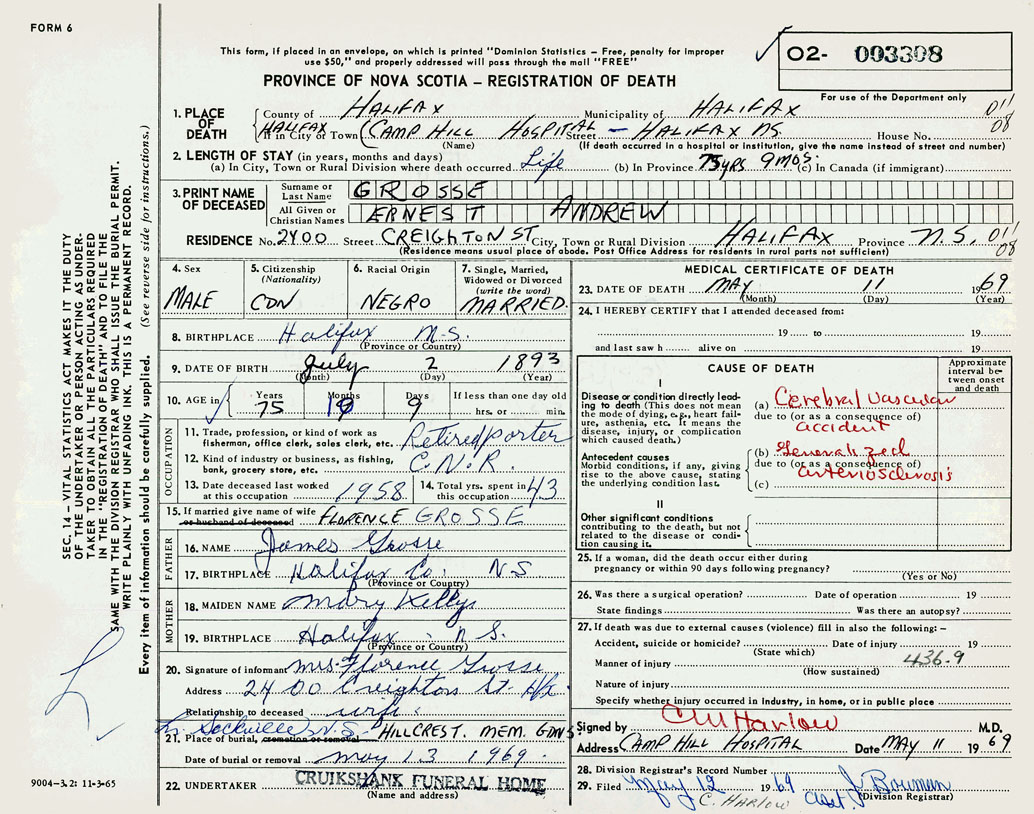 FORM 6
This form, if placed in an envelope, on which is printed "Dominion Statistics – Free, penalty for improper
use $50," and properly addressed will pass through the mail "FREE"
O2- 003308
For use of the Department only
PROVINCE OF NOVA SCOTIA – REGISTRATION OF DEATH
1. PLACE OF DEATH
County of HALIFAX Municipality of HALIFAX 011
HALIFAX If in City or Town (CAMP HILL HOSPITAL Street – HALIFAX NS House No. 08
(Name) (If death occurred in a hospital or institution, give the name instead of street and number)
2. LENGTH OF STAY (in years, months and days)
(a) In City, Town or Rural Division where death occurred Life (b) In Province 75 yrs 9 mos. (c) In Canada (if immigrant)
3. PRINT NAME OF DECEASED
Surname or Last Name GROSSE
All Given or Christian Names ERNEST ANDREW
RESIDENCE No. 2400 Street CREIGHTON ST City, Town or Rural Division HALIFAX Province N.S. 011
(Residence means usual place of abode. Post Office Address for residents in rural parts not sufficient) 08
4. Sex MALE
5. Citizenship (Nationality) CDN
6. Racial Origin NEGRO
7. Single, Married, Widowed or Divorced (write the word) MARRIED.
8. BIRTHPLACE Halifax N.S.
(Province or Country)
9. DATE OF BIRTH July 2 1893
(Month) (Day) (Year)
10. AGE in Years Months Days If less than one day old
75 10 9 hrs. or min.
OCCUPATION
11. Trade, profession, or kind of work as fisherman, office clerk, sales clerk, etc. Retired porter
12. Kind of industry or business, as fishing, bank, grocery store, etc. C.N.R.
13. Date deceased last worked at this occupation 1958
14. Total yrs. spent in this occupation 43
15. If married give name of wife or husband of deceased FLORENCE GROSSE
FATHER
16. NAME James Grosse
17. BIRTHPLACE Halifax Co. N.S.
(Province or Country)
MOTHER
18. MAIDEN NAME Mary Kellys
19. BIRTHPLACE Halifax N S.
(Province or Country)
20. Signature of informant Mrs Florence Grosse
Address 2400 Creighton St. Hfx
Relationship to deceased wife.
Sackville N.S.
21. Place of burial, cremation or removal HILLCREST. MEM. GDNS
Date of burial or removal May 13 1969.
22. UNDERTAKER CRUIKSHANK FUNERAL HOME
(Name and address)
MEDICAL CERTIFICATE OF DEATH
23. DATE OF DEATH MAY 11 1969
(Month) (Day) (Year)
24. I HEREBY CERTIFY that I attended deceased from:
19 to 19
and last saw h alive on 19
CAUSE OF DEATH
Approximate interval between onset and death
I
Disease or condition directly leading to death (This does not mean the mode of dying, e.g., heart failure, asthenia, etc. It means the disease, injury, or complication which caused death.)
(a) Cerebral Vascular
due to (or as a consequence of)
accident
Antecedent causes
Morbid conditions, if any, giving rise to the above cause, stating the underlying condition last.
(b) Generalized
due to (or as a consequence of)
arteriosclerosis
(c)
II
Other significant conditions
contributing to the death, but not related to the disease or condition causing it
25. If a woman, did the death occur either during
pregnancy or within 90 days following pregnancy?
(Yes or No)
26. Was there a surgical operation? Date of operation 19
State findings Was there an autopsy?
27. If death was due to external causes (violence) fill in also the following: –
Accident, suicide or homicide? Date of injury 19
(State which) 436.9
Manner of injury
(How sustained)
Nature of injury
Specify whether injury occurred in industry, in home, or in public place
Signed by CM Harlow M.D.
Address CAMP HILL HOSPITAL Date MAY 11 1969
28. Division Registrar's Record Number
29. Filed May 12 1969 J Bowman
C. HARLOW (Division Registrar)
SEC. 14 – VITAL STATISTICS ACT MAKES IT THE DUTY
OF THE UNDERTAKER OR PERSON ACTING AS UNDER-
TAKER TO OBTAIN ALL THE PARTICULARS REQUIRED
IN THE "REGISTRATION OF DEATH" AND TO FILE THE
SAME WITH THE DIVISION REGISTRAR WHO SHALL ISSUE THE BURIAL PERMIT.
WRITE PLAINLY WITH UNFADING INK. THIS IS A PERMANENT RECORD.
Every item of information should be carefully supplied. (See reverse side for instructions.)
9004–3.2: 11-3-65